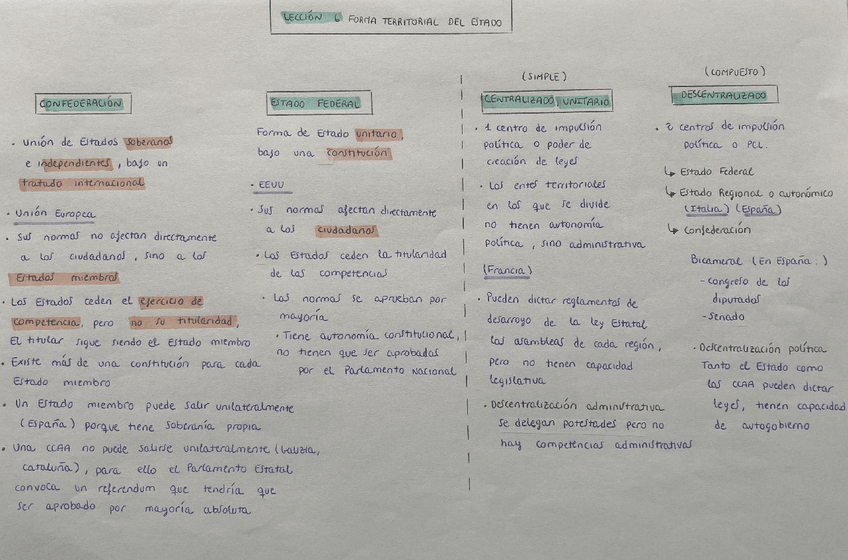 LECCIÓN 6 FORMA TERRITORIAL DEL ESTADO
CONFEDERACIÓN
• Unión de Estados soberanos
e independientes, bajo un
tratado internacional
• Unión Europea
• Sus normas no afectan directamente
a los ciudadanos, sino a los
Estados miembros
• Los Estados ceden el ejercicio de
competencia, pero no su titularidad,
El titular sigue siendo el Estado miembro
• Existe más de una constitución para cada
Estado miembro
• Un Estado miembro puede salir unilateralmente
(España) porque tiene soberanía propia
• Una CCAA no puede salirse unilateralmente (Galizia,
cataluña), para ello el Parlamento Estatal
convoca un referendum que tendría que
ser aprobado por mayoría absoluta
ESTADO FEDERAL
Forma de Estado unitario,
bajo una constitución
- EEUU
• Sus normas afectan directamente
a los ciudadanos
• Los Estados ceden la titularidad
de las competencias
• Las normas se aprueban por
mayoría
• Tiene autonomía constitucional,
no tienen que ser aprobadas
por el Parlamento Nacional
(SIMPLE)
CENTRALIZADO UNITARIO
• 1 centro de impulsión
política o poder de
creación de leyes
• Los entes territoriales
en los que se divide
no tienen autonomía
política, sino administrativa
(Francia)
• Pueden dictar reglamentos de
desarroyo de la ley Estatal
las asambleas de cada región,
pero no tienen capacidad
legislativa
• Descentralización administrativa
se delegan potestades pero no
hay competencias administrativas
(COMPUESTO)
DESCENTRALIZADO
• 2 centros de impulsión
política o PCL.
↳ Estado Federal
↳ Estado Regional o autonómico
(Italia) (España)
↳ Confederación
Bicameral (En España:)
- congreso de los
diputados
- Senado
• Descentralización política
Tanto el Estado como
las CCAA pueden dictar
leyes, tienen capacidad
de autogobierno